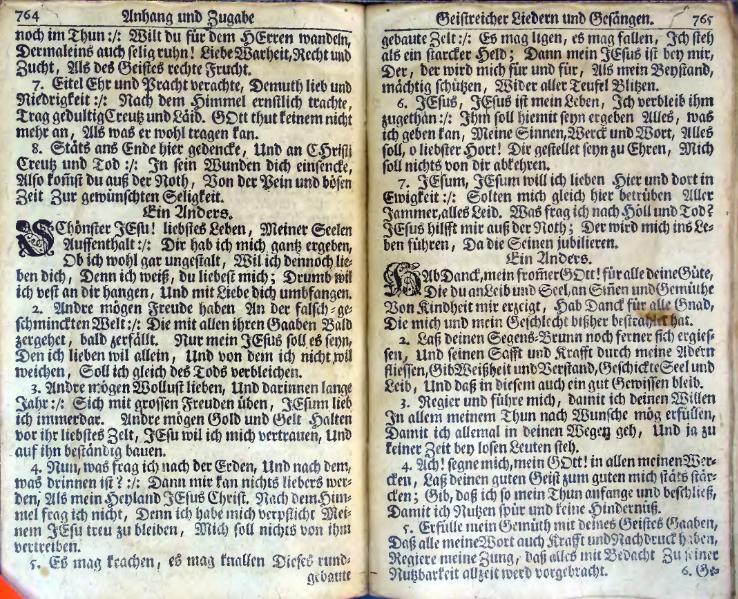 764 Anhang und Zugabe
noch im Thun :/: Wilt du für dem HErren wandeln,
Dermaleins auch selig ruhn! Liebe Warheit, Recht und
Zucht, Als des Geistes rechte Frucht.
7. Eitel Ehr und Pracht verachte, Demuth lieb und
Niedrigkeit :/: Nach dem Himmel ernstlich trachte,
Trag gedultig Creutz und Läid. GOtt thut keinem nicht
mehr an, Als was er wohl tragen kan.
8. Stäts ans Ende hier gedencke, Und an CHristi
Creutz und Tod :/: In sein Wunden dich einsencke,
Also kom̄st du auß der Noth, Von der Pein und bösen
Zeit Zur gewünschten Seligkeit.
Ein Anders.
SChönster JEsu! liebstes Leben, Meiner Seelen
Auffenthalt :/: Dir hab ich mich gantz ergeben,
Ob ich wohl gar ungestalt, Wil ich dennoch lie-
ben dich, Denn ich weiß, du liebest mich; Drumb wil
ich vest an dir hangen, Und mit Liebe dich umbfangen.
2. Andre mögen Freude haben An der falsch-ge-
schminckten Welt :/: Die mit allen ihren Gaaben Bald
zergehet, bald zerfällt. Nur mein JEsus soll es seyn,
Den ich lieben wil allein, Und von dem ich nicht wil
weichen, Soll ich gleich des Tods verbleichen.
3. Andre mögen Wollust lieben, Und darinnen lange
Jahr :/: Sich mit grossen Freuden üben, JEsum lieb
ich immerdar. Andre mögen Gold und Gelt Halten
vor ihr liebstes Zelt, JEsu wil ich mich vertrauen, Und
auf ihn beständig bauen.
4. Nun, was frag ich nach der Erden, Und nach dem,
was drinnen ist? :/: Dann mir kan nichts liebers wer-
den, Als mein Heyland JEsus Christ. Nach dem Him-
mel frag ich nicht, Denn ich habe mich verpflicht Mei-
nem JEsu treu zu bleiben, Mich soll nichts von ihm
vertreiben.
5. Es mag krachen, es mag knallen Dieses rund-
gebaute
Geistreicher Liedern und Gesängen. 765
gebaute Zelt :/: Es mag ligen, es mag fallen, Ich steh
als ein starcker Held; Dann mein JEsus ist bey mir,
Der, der wird mich für und für, Als mein Beystand,
mächtig schützen, Wider aller Teufel Blitzen.
6. JEsus, JEsus ist mein Leben, Ich verbleib ihm
zugethan :/: Ihm soll hiemit seyn ergeben Alles, was
ich geben kan, Meine Sinnen, Werck und Wort, Alles
soll, o liebster Hort! Dir gestellet seyn zu Ehren, Mich
soll nichts von dir abkehren.
7. JEsum, JEsum will ich lieben Hier und dort in
Ewigkeit :/: Solten mich gleich hier betrüben Aller
Jammer, alles Leid. Was frag ich nach Höll und Tod?
JEsus hilfft mir auß der Noth; Der wird mich ins Le-
ben führen, Da die Seinen jubilieren.
Ein Anders.
HAb Danck, mein from̄er GOtt! für alle deine Güte,
Die du an Leib und Seel, an Sin̄en und Gemüthe
Von Kindheit mir erzeigt, Hab Danck für alle Gnad,
Die mich und mein Geschlecht bißher bestrahlet hat.
2. Laß deinen Segens-Brunn noch ferner sich ergies-
sen, Und seinen Safft und Krafft durch meine Adern
fliessen, Gib Weißheit und Verstand, Geschickte Seel und
Leib, Und daß in diesem auch ein gut Gewissen bleib.
3. Regier und führe mich, damit ich deinen Willen
In allem meinem Thun nach Wunsche mög erfüllen,
Damit ich allemal in deinen Wegen geh, Und ja zu
keiner Zeit bey losen Leuten steh.
4. Ach! segne mich, mein GOtt! in allen meinen Wer-
cken, Laß deinen guten Geist zum guten mich stäts stär-
cken; Gib, daß ich so mein Thun anfange und beschließ,
Damit ich Nutzen spür und keine Hindernüß.
5. Erfülle mein Gemüth mit deines Geistes Gaaben,
Daß alle meine Wort auch Krafft und Nachdruck haben,
Regiere meine Zung, daß alles mit Bedacht Zu seiner
Nutzbarkeit allzeit werd vorgebracht. 6. Ge-